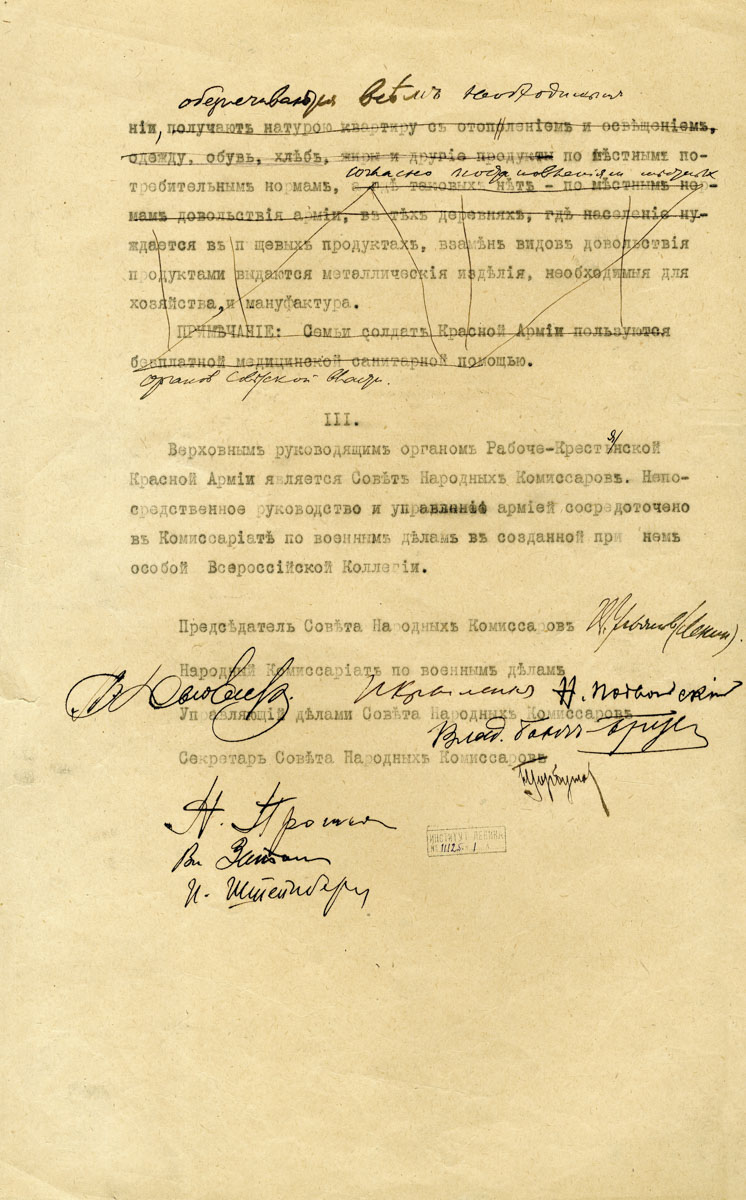 обезпечиваются всѣмъ необходимым
ніи, получаютъ натурою квартиру съ отопленіемъ и освѣщеніемъ,
одежду, обувь, хлѣбъ, жиры и другіе продукты по мѣстнымъ по-
согласно постановленіям местных
требительнымъ нормамъ, а гдѣ таковыхъ нѣтъ - по мѣстнымъ нор-
мамъ довольствія арміи, въ тѣхъ деревняхъ, гдѣ населеніе ну-
ждается въ пищевыхъ продуктахъ, взамѣнъ видовъ довольствія
продуктами выдаются металлическія издѣлія, необходимыя для
хозяйства, и мануфактура.
ПРИМѢЧАНІЕ: Семьи солдатъ Красной Арміи пользуются
безплатной медицинской санитарной помощью.
органов Советской власти.
III.
Верховнымъ руководящимъ органомъ Рабоче-Крестьянской
Красной Арміи является Совѣтъ Народныхъ Комиссаровъ. Непо-
средственное руководство и управленіе арміей сосредоточено
въ Комиссаріатѣ по военнымъ дѣламъ въ созданной при немъ
особой Всероссійской Коллегіи.
Предсѣдатель Совѣта Народныхъ Комиссаровъ В. Ульянов (Ленин).
Народный Комиссаріатъ по военнымъ дѣламъ
Н. Крыленко Н. Подвойскій
Управляющій дѣлами Совѣта Народныхъ Комиссаровъ
Влад. Бонч-Бруевич
Секретарь Совѣта Народныхъ Комиссаровъ
Н. Горбунов
Вл
И. Штейнберг
ИНСТИТУТ ЛЕНИНА